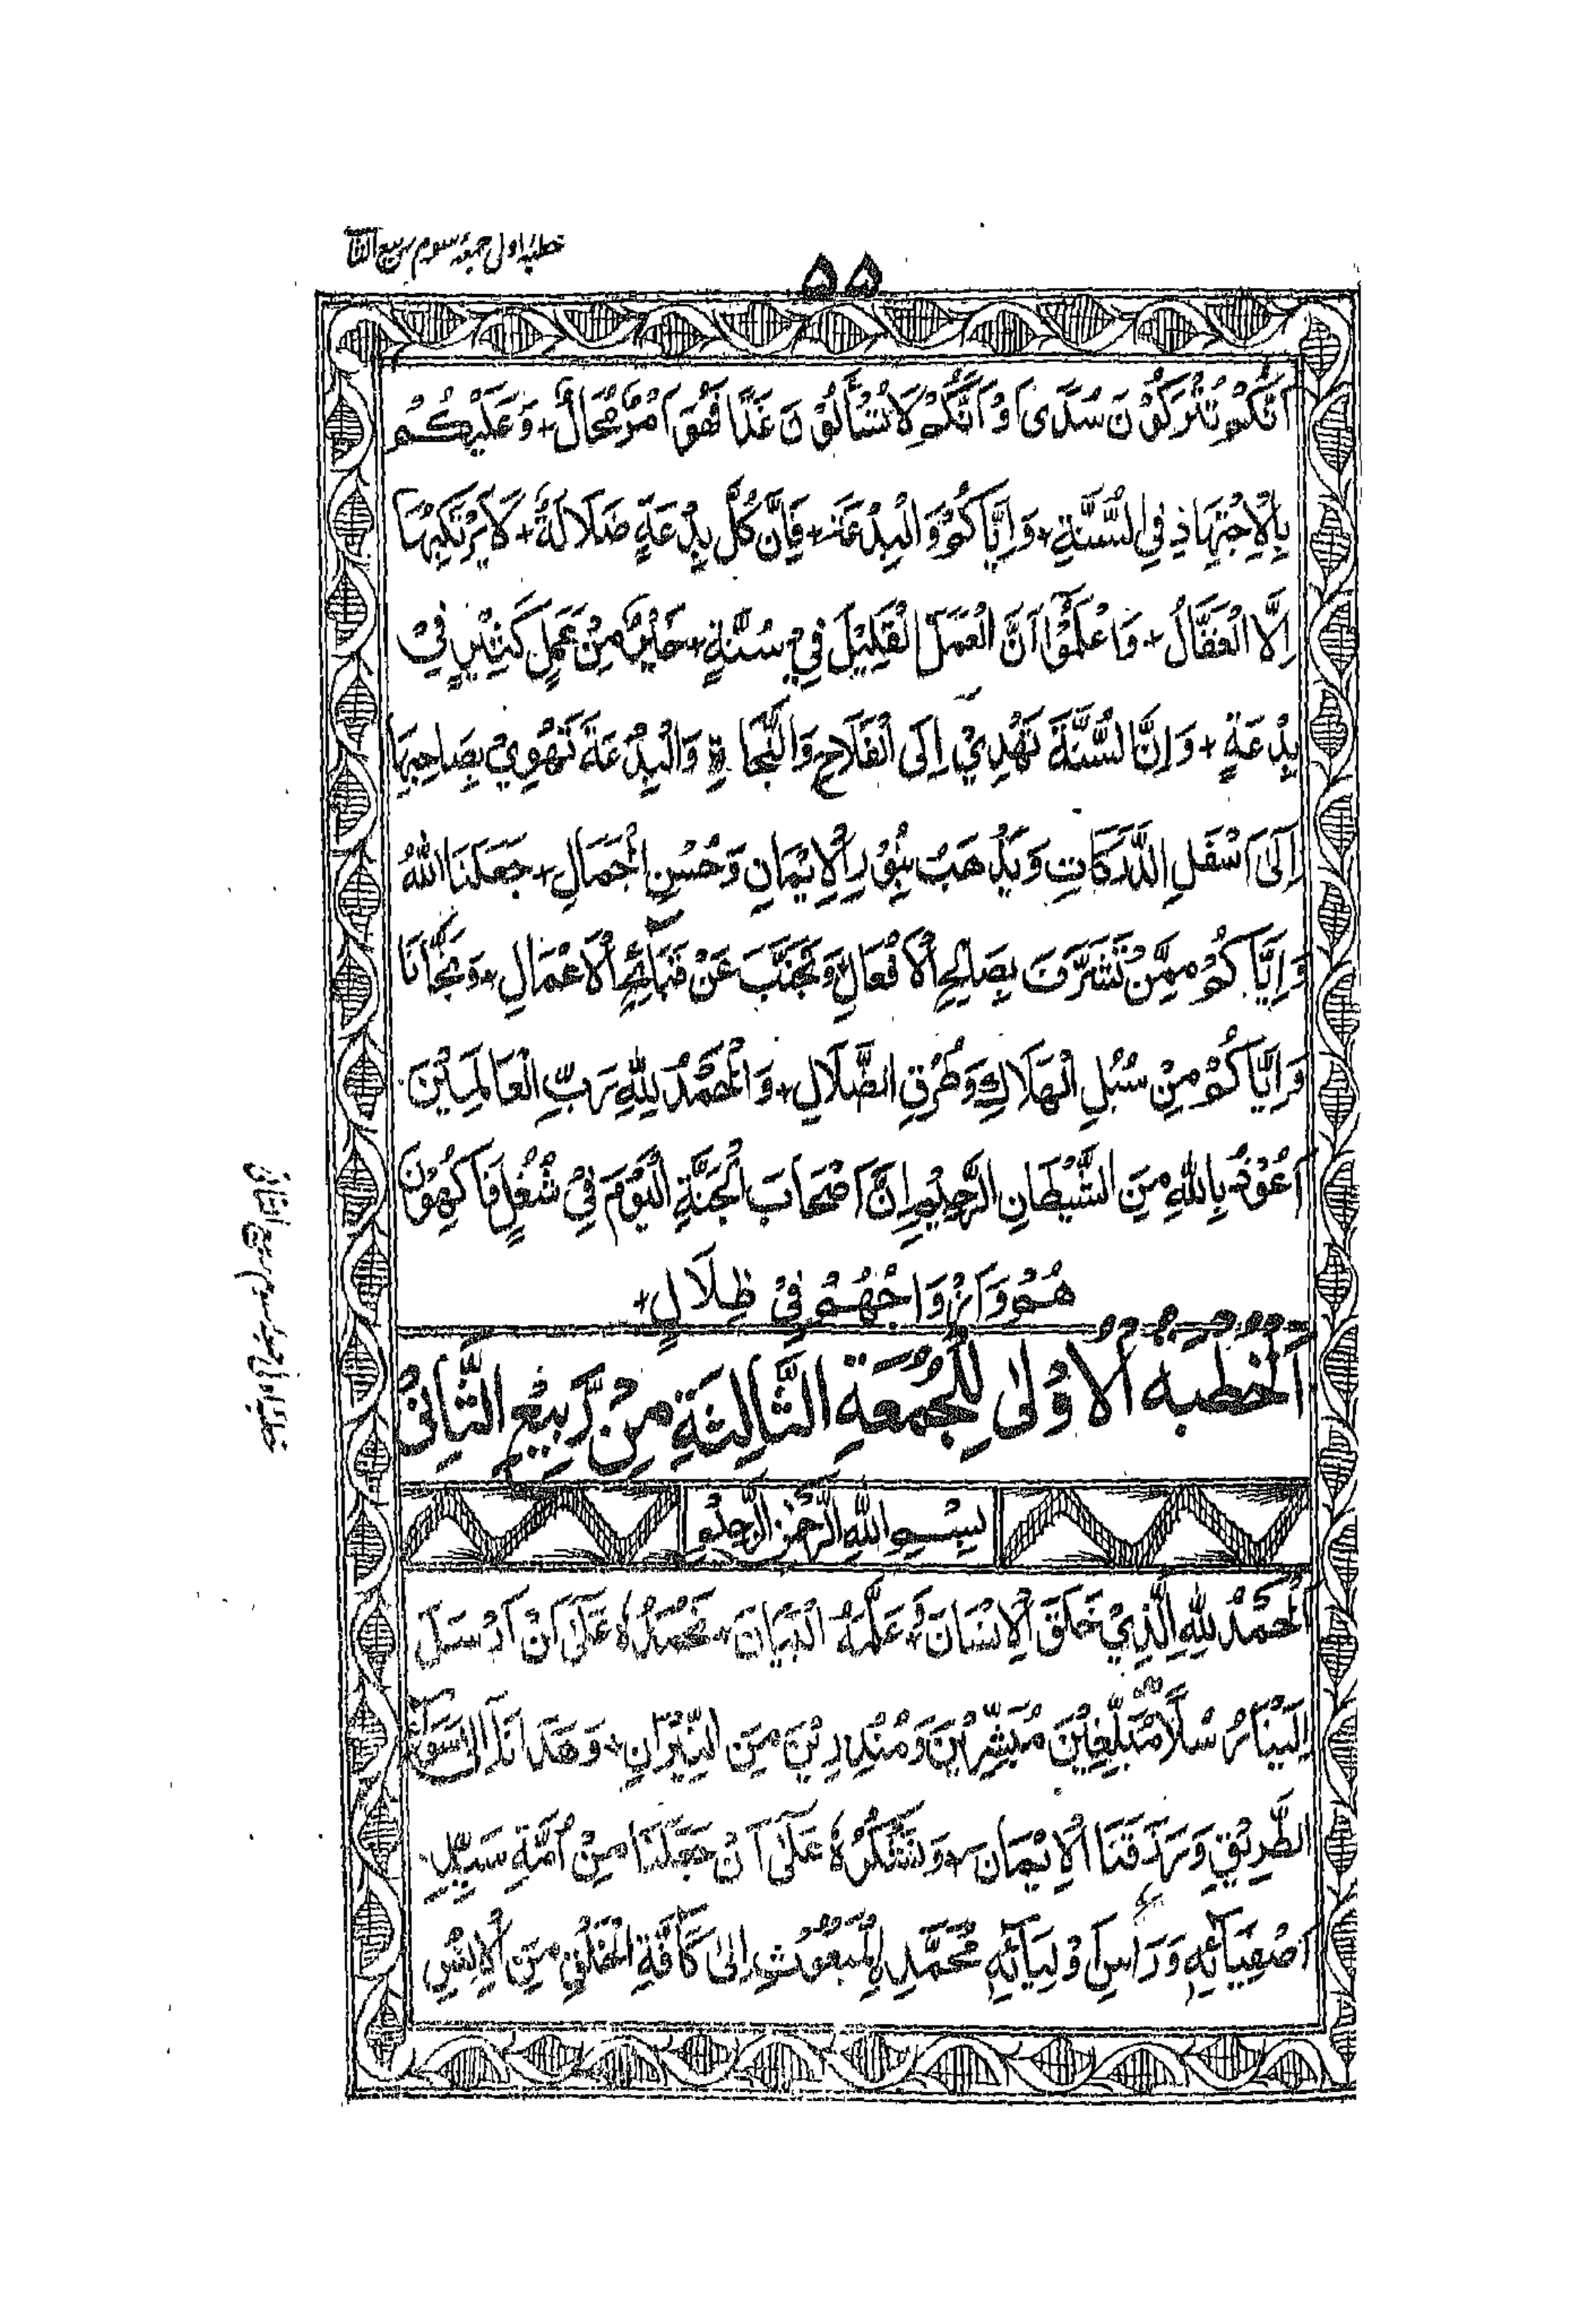 خطبۂ اول جمعۂ سوم ربیع الثا
۵۵
اَنَّكُمْ تُتْرَكُوْنَ سُدًى اَوْ اَنَّكُمْ لَا تُسْأَلُوْنَ غَدًا فَهُوَ اَمْرٌ مُحَالٌ + وَعَلَيْكُمْ
بِالْاِجْتِهَادِ فِي السُّنَّةِ + وَاِيَّاكُمْ وَالْبِدْعَةَ + فَاِنَّ كُلَّ بِدْعَةٍ ضَلَالَةٌ + لَا يَرْتَكِبُهَا
اِلَّا الْغَفَّالُ + وَاعْلَمُوْا اَنَّ الْعَمَلَ الْقَلِيْلَ فِيْ سُنَّةٍ + خَيْرٌ مِنْ عَمَلٍ كَثِيْرٍ فِيْ
بِدْعَةٍ + وَاِنَّ السُّنَّةَ تَهْدِيْ اِلَى الْفَلَاحِ وَالنَّجَاةِ وَالْبِدْعَةَ تَهْوِيْ بِصَاحِبِهَا
اِلَىٰ اَسْفَلِ الدَّرَكَاتِ وَيَذْهَبُ بِنُوْرِ الْاِيْمَانِ وَحُسْنِ الْجَمَالِ + جَعَلَنَا اللهُ
وَاِيَّاكُمْ مِمَّنْ تَشَرَّفَ بِصَالِحِ الْاَفْعَالِ وَتَجَنَّبَ عَنْ قَبَائِحِ الْاَعْمَالِ + وَنَجَّانَا
وَاِيَّاكُمْ مِنْ سُبُلِ الْهَلَاكِ وَطُرُقِ الضَّلَالِ + وَالْحَمْدُ لِلّٰهِ رَبِّ الْعَالَمِيْنَ
اَعُوْذُ بِاللهِ مِنَ الشَّيْطَانِ الرَّجِيْمِ اِنَّ اَصْحَابَ الْجَنَّةِ الْيَوْمَ فِيْ شُغُلٍ فَاكِهُوْنَ
هُمْ وَاَزْوَاجُهُمْ فِيْ ظِلَالٍ +
اَلْخُطْبَةُ الْاُوْلٰى لِلْجُمُعَةِ الثَّالِثَةِ مِنْ رَّبِيْعِ الثَّانِيْ
بِسْمِ اللهِ الرَّحْمٰنِ الرَّحِيْمِ
اَلْحَمْدُ لِلّٰهِ الَّذِيْ خَلَقَ الْاِنْسَانَ + عَلَّمَهُ الْبَيَانَ + نَحْمَدُهُ عَلٰى اَنْ اَرْسَلَ
اِلَيْنَا رُسُلًا مُبَلِّغِيْنَ مُبَشِّرِيْنَ وَمُنْذِرِيْنَ مِنَ النِّيْرَانِ + وَهَدَانَا اِلٰى سَوَاءِ
الطَّرِيْقِ وَرَزَقَنَا الْاِيْمَانَ + وَنَشْكُرُهُ عَلٰى اَنْ جَعَلَنَا مِنْ اُمَّةِ سَيِّدِ
اَصْفِيَائِهِ وَرَأْسِ اَوْلِيَائِهِ مُحَمَّدٍ الْمَبْعُوْثِ اِلٰى كَافَّةِ الْخَلْقِ مِنَ الْاِنْسِ